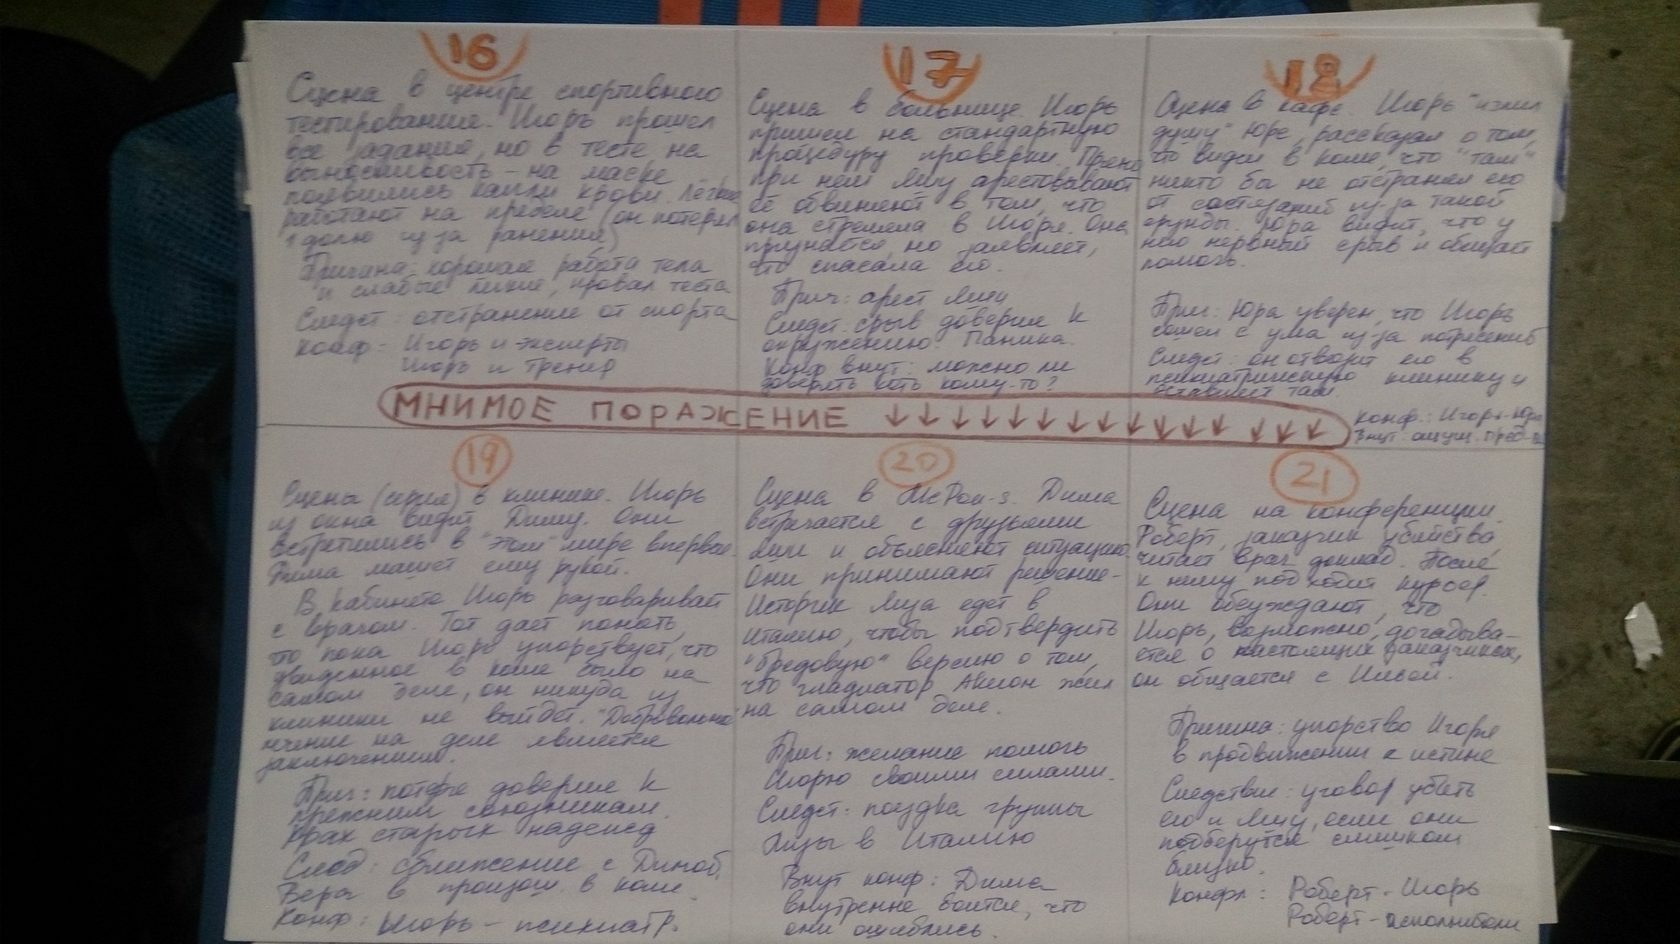 16
Сцена в центре спортивного
тестирования. Игорь прошел
все задания, но в тесте на
выносливость - на маске
появились капли крови. Легкие
работают на пределе (он потерял
1 долю из-за ранения)
Причина: хорошая работа тела
и слабые легкие, провал теста
Следст: отстранение от спорта
Конф - Игорь и эксперты
Игорь и тренер
17
Сцена в больнице. Игорь
пришел на стандартную
процедуру проверки. Прямо
при нем Лизу арестовывают
её обвиняют в том, что
она стреляла в Игоря. Она
признаётся, но заявляет,
что спасала его.
Прич: арест Лизы
Следст. срыв доверия к
окружению. Паника.
Конф внут: можно ли
доверять хоть кому-то?
18
Сцена в кафе. Игорь "излил
душу" Юре, рассказал о том,
что видел в коме, что "там"
никто бы не отстранил его
от состязаний из-за такой
ерунды. Юра видит, что у
него нервный срыв и обещает
помочь.
Прич: Юра уверен, что Игорь
сошел с ума из-за потрясений
Следст: он отвозит его в
психиатрическую клинику и
оставляет там
Конф.: Игорь-Юра
Внут: ощущ.
МНИМОЕ ПОРАЖЕНИЕ ↓↓↓↓↓↓↓↓↓↓↓↓ ↓↓↓
19
Сцены (серия) в клинике. Игорь
из окна видит Диму. Они
встретились в "этом" мире впервые.
Дима машет ему рукой.
В кабинете Игорь разговаривает
с врачом. Тот дает понять,
что пока Игорь упорствует, что
увиденное в коме было на
самом деле, он никуда из
клиники не выйдет. "Добровольное"
лечение на деле является
заключением.
Прич: потеря доверия к
прежним союзникам.
Крах старых надежд
След: сближение с Димой.
Вера в произош. в коме.
Конф: Игорь - психиатр.
20
Сцена в McDon-s. Дима
встречается с друзьями
Лизы и объясняют ситуацию.
Они принимают решение -
Историк Лиза едет в
Италию, чтобы подтвердить
"бредовую" версию о том,
что гладиатор жил
на самом деле.
Прич: желание помочь
Игорю своими силами.
Следст: поездка группы
Лизы в Италию
Внут конф: Дима
внутренне боится, что
они ошиблись.
21
Сцена на конференции.
Роберт, заказчик убийства
читает врач. доклад. После
к нему подходит курьер.
Они обсуждают, что
Игорь, возможно, догадыва-
ется о настоящих заказчиках,
он общается с
Причина: упорство Игоря
в продвижении к истине
Следствие: уговор убить
его и Лизу, если они
подберутся слишком
близко.
Конфл: Роберт - Игорь
Роберт - исполнители